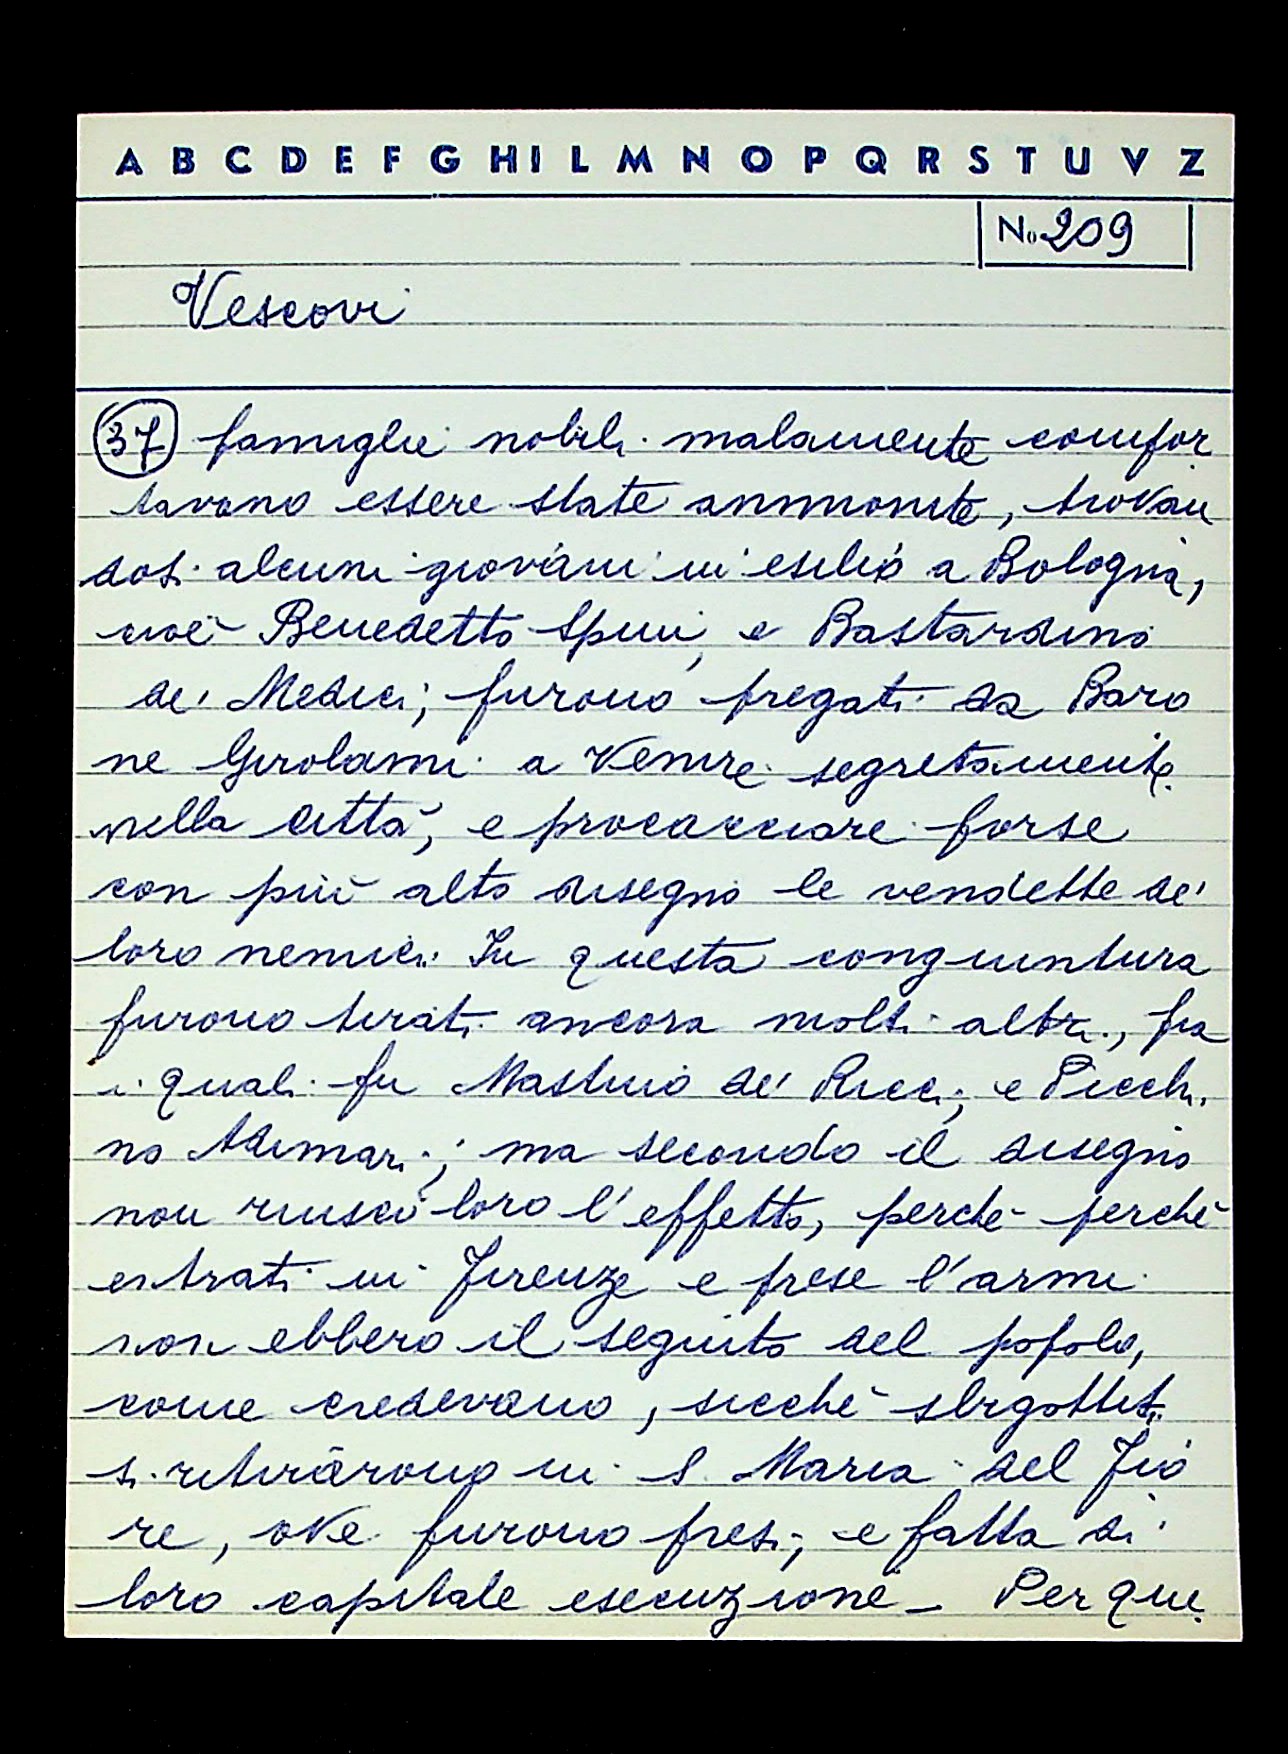 A B C D E F G H I L M N O P Q R S T U V Z
No 209
Vescovi
37 famiglie nobili malamente comfor
tavano essere state ammonite, trovan
dosi alcuni giovani in esilio a Bologna,
cioè Benedetto Spini, e Bastardino
de' Medici; furono pregati da Baro
ne Girolami a venire segretamente
nella città, e procacciare forse
con più alto disegno le vendette de'
loro nemici. In questa congiuntura
furono tirati ancora molti altri, fra
i quali fu Mastino de' Ricci; e Picchi
no Adimari; ma secondo il disegno
non riuscì loro l'effetto, perchè perchè
entrati in Firenze e prese l'armi
non ebbero il seguito del popolo,
come credevano, sicchè sbigottiti
si ritirarono in S. Maria del Fio
re, ove furono presi; e fatta di
loro capitale esecuzione - Per que